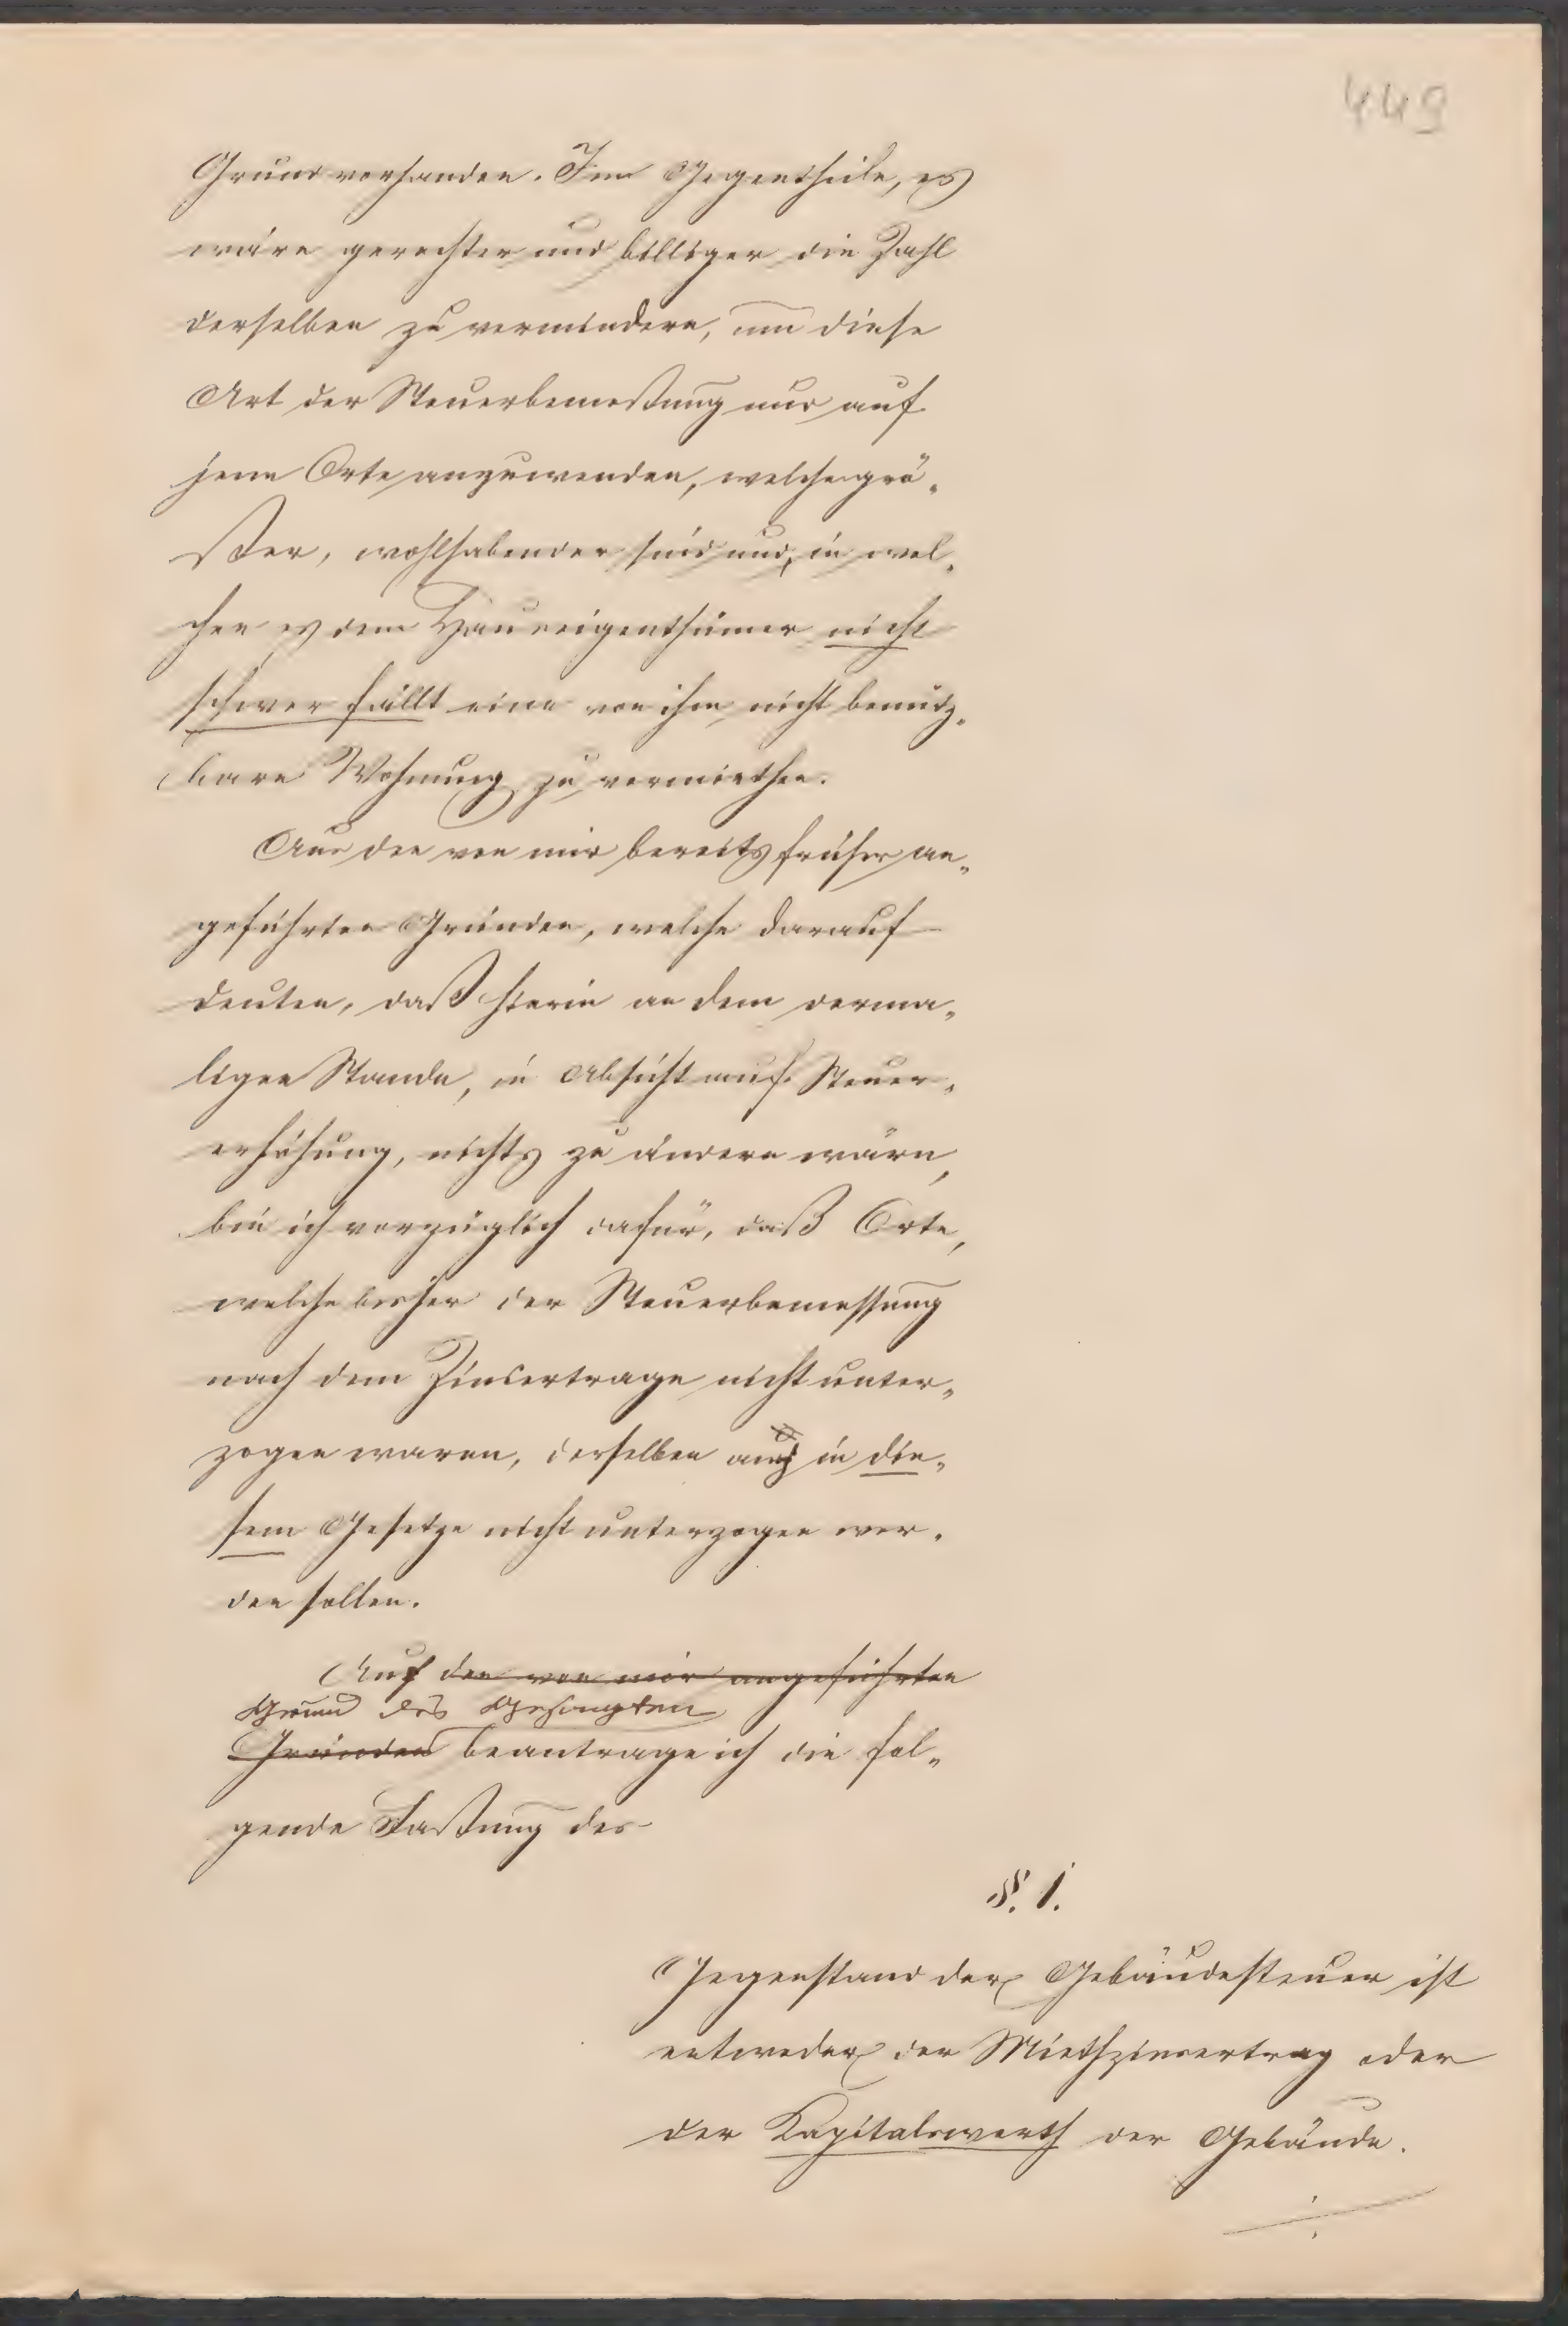 449
Grund vorhanden. Im Gegentheile, es
wäre gerechter und billiger die Zahl
derselben zu vermindern, um diese
Art der Steuerbemeßung nur auf
jene Orte anzuwenden, welche grö„
ßer, wohlhabender sind und, in wel„
chen es dem Hauseigenthümer nicht
schwer fällt eine von ihm nicht benütz„
bare Wohnung zu vermiethen.
Aus den von mir bereits früher an„
geführten Gründen, welche darauf
deuten, daß hierin an dem derma„
ligen Stande, in Absicht auf Steuer„
erhöhung, nichts zu ändern wäre,
bin ich vorzüglich dafür, daß Orte,
welche bisher der Steuerbemessung
nach dem Zinsertrage nicht unter„
zogen waren, derselben auch in die„
sem Gesetze nicht unterzogen wer„
den sollen.
Auf den von mir angeführten
Grund des Gesagten
Gründen beantrage ich die fol„
gende Faßung des
§. 1.
Gegenstand der Gebäudesteuer ist
entweder der Miethzinsertrag oder
der Kapitalswerth der Gebäude.